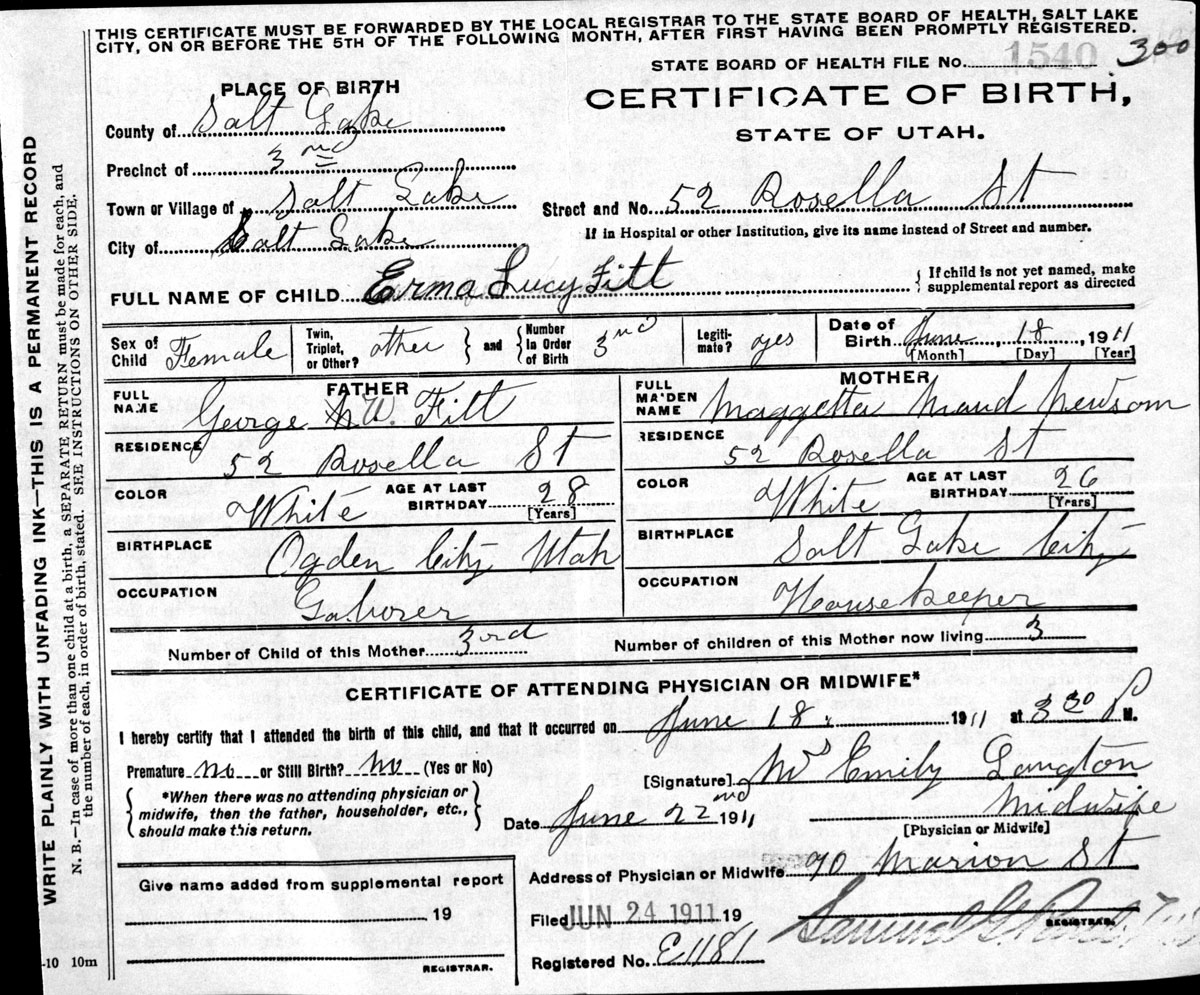 THIS CERTIFICATE MUST BE FORWARDED BY THE LOCAL REGISTRAR TO THE STATE BOARD OF HEALTH, SALT LAKE
CITY, ON OR BEFORE THE 5TH OF THE FOLLOWING MONTH, AFTER FIRST HAVING BEEN PROMPTLY REGISTERED.
WRITE PLAINLY WITH UNFADING INK—THIS IS A PERMANENT RECORD
N. B.—In case of more than one child at a birth, a SEPARATE RETURN must be made for each, and
the number of each, in order of birth, stated. SEE INSTRUCTIONS ON OTHER SIDE.
STATE BOARD OF HEALTH FILE No. 1540 300
PLACE OF BIRTH
CERTIFICATE OF BIRTH,
STATE OF UTAH.
County of Salt Lake
Precinct of 3nd
Town or Village of Salt Lake
Street and No. 52 Rosella St
City of Salt Lake
If in Hospital or other Institution, give its name instead of Street and number.
FULL NAME OF CHILD Erma Lucy Fitt
{ If child is not yet named, make
supplemental report as directed
Sex of Child Female
Twin, Triplet, or Other? other
} and { Number In Order of Birth 3nd
Legitimate? yes
Date of Birth June 18, 1911
[Month] [Day] [Year]
FATHER
FULL NAME George W. Fitt
RESIDENCE 52 Rosella St
COLOR White
AGE AT LAST BIRTHDAY 28
[Years]
BIRTHPLACE Ogden City Utah
OCCUPATION Laborer
MOTHER
FULL MAIDEN NAME Maggetta Maud Newsom
RESIDENCE 52 Rosella St
COLOR White
AGE AT LAST BIRTHDAY 26
[Years]
BIRTHPLACE Salt Lake City
OCCUPATION Housekeeper
Number of Child of this Mother 3rd
Number of children of this Mother now living 3
CERTIFICATE OF ATTENDING PHYSICIAN OR MIDWIFE*
I hereby certify that I attended the birth of this child, and that it occurred on June 18, 1911 at 3 30 P M.
Premature no or Still Birth? no (Yes or No)
[Signature] Mrs Emily Langton
{ *When there was no attending physician or
midwife, then the father, householder, etc.,
should make this return. }
Date June 22nd 1911
Midwife
[Physician or Midwife]
Address of Physician or Midwife 90 Marion St
Give name added from supplemental report
19
REGISTRAR.
Filed JUN 24 1911 19
Samuel G.
REGISTRAR.
Registered No. E1181
-10 10m